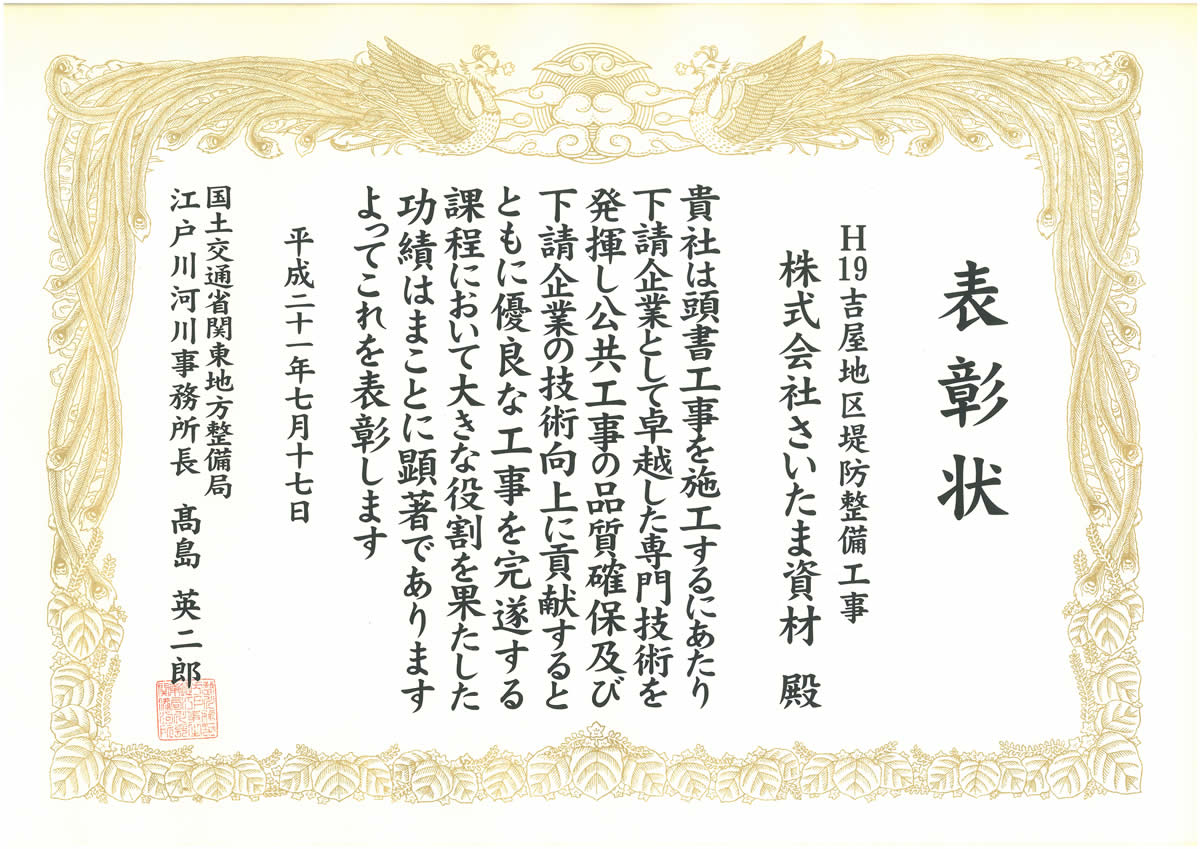 表彰状
H19吉屋地区堤防整備工事
株式会社さいたま資材 殿
貴社は頭書工事を施工するにあたり
下請企業として卓越した専門技術を
発揮し公共工事の品質確保及び
下請企業の技術向上に貢献すると
ともに優良な工事を完遂する
課程において大きな役割を果たした
功績はまことに顕著であります
よってこれを表彰します
平成二十一年七月十七日
国土交通省関東地方整備局
江戸川河川事務所長 髙島 英二郎